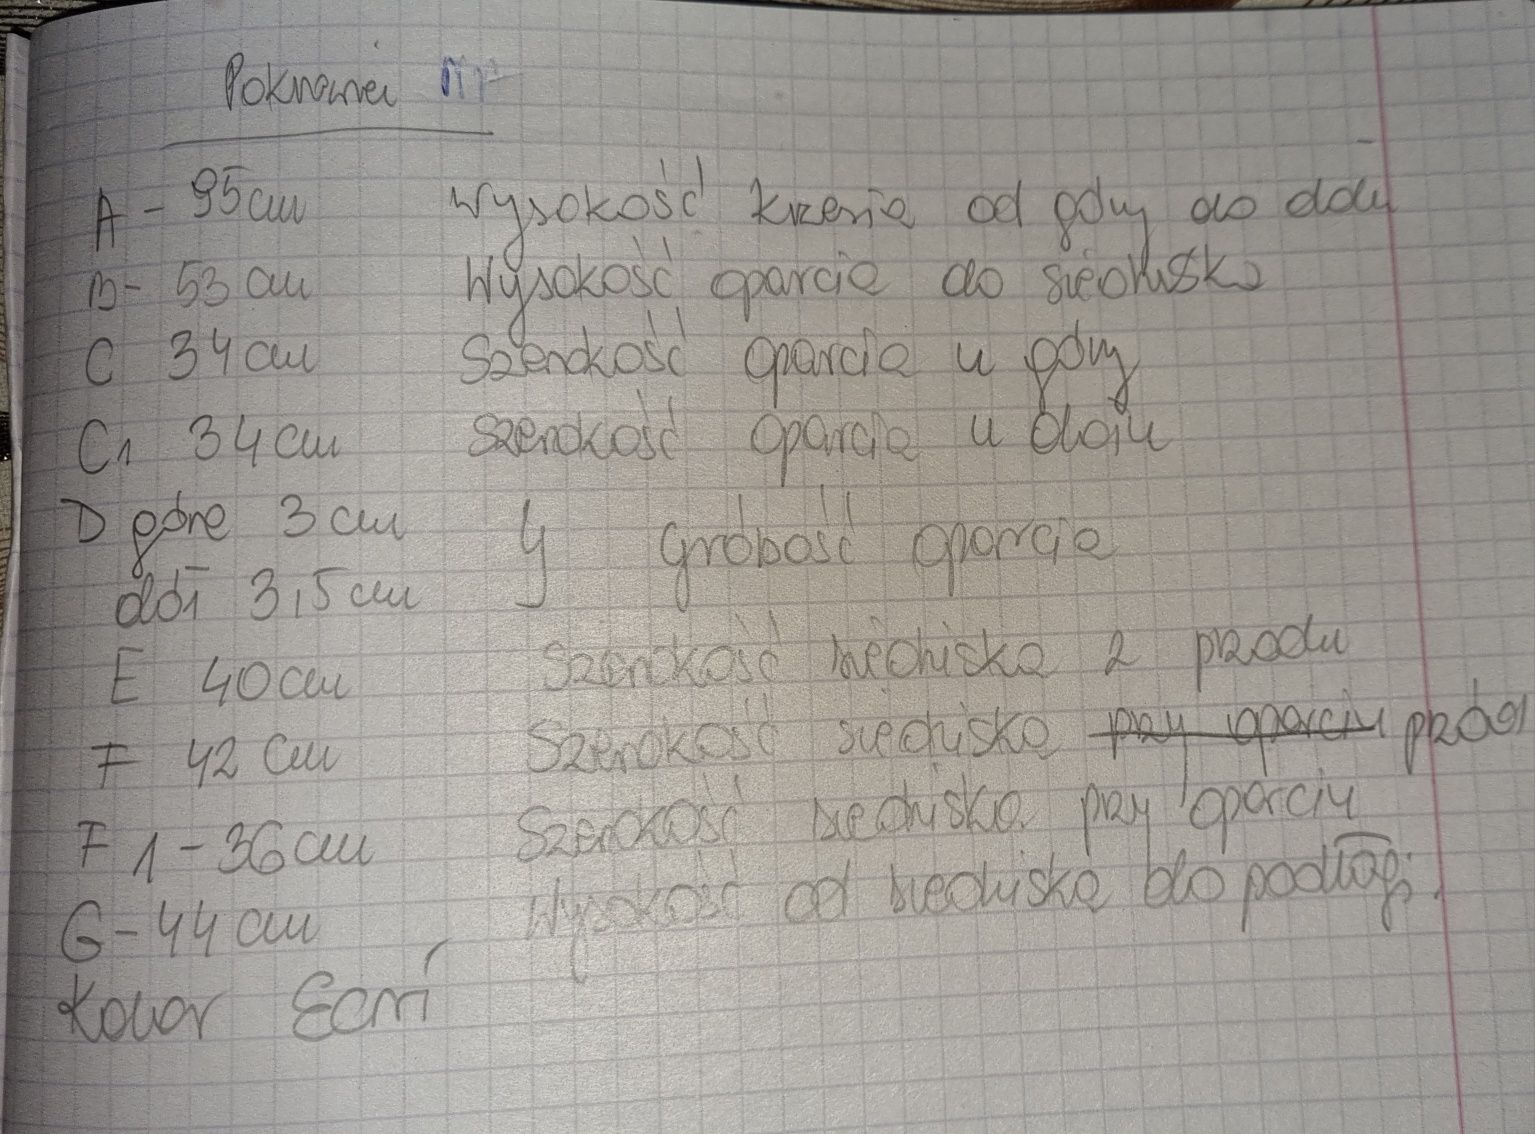 Pokrowiec
A - 95cm Wysokość krzesła od góry do dołu
B - 53 cm Wysokość oparcia do siedziska
C 34 cm Szerokość oparcia u góry
C1 34 cm Szerokość oparcia u dołu
D góra 3 cm grubość oparcia
dół 3,5 cm
E 40 cm Szerokość siedziska z przodu
F 42 cm Szerokość siedziska przy oparciu przód
F 1 - 36 cm Szerokość siedziska przy oparciu
G - 44 cm Wysokość od siedziska do podłogi
Kolor Ecri